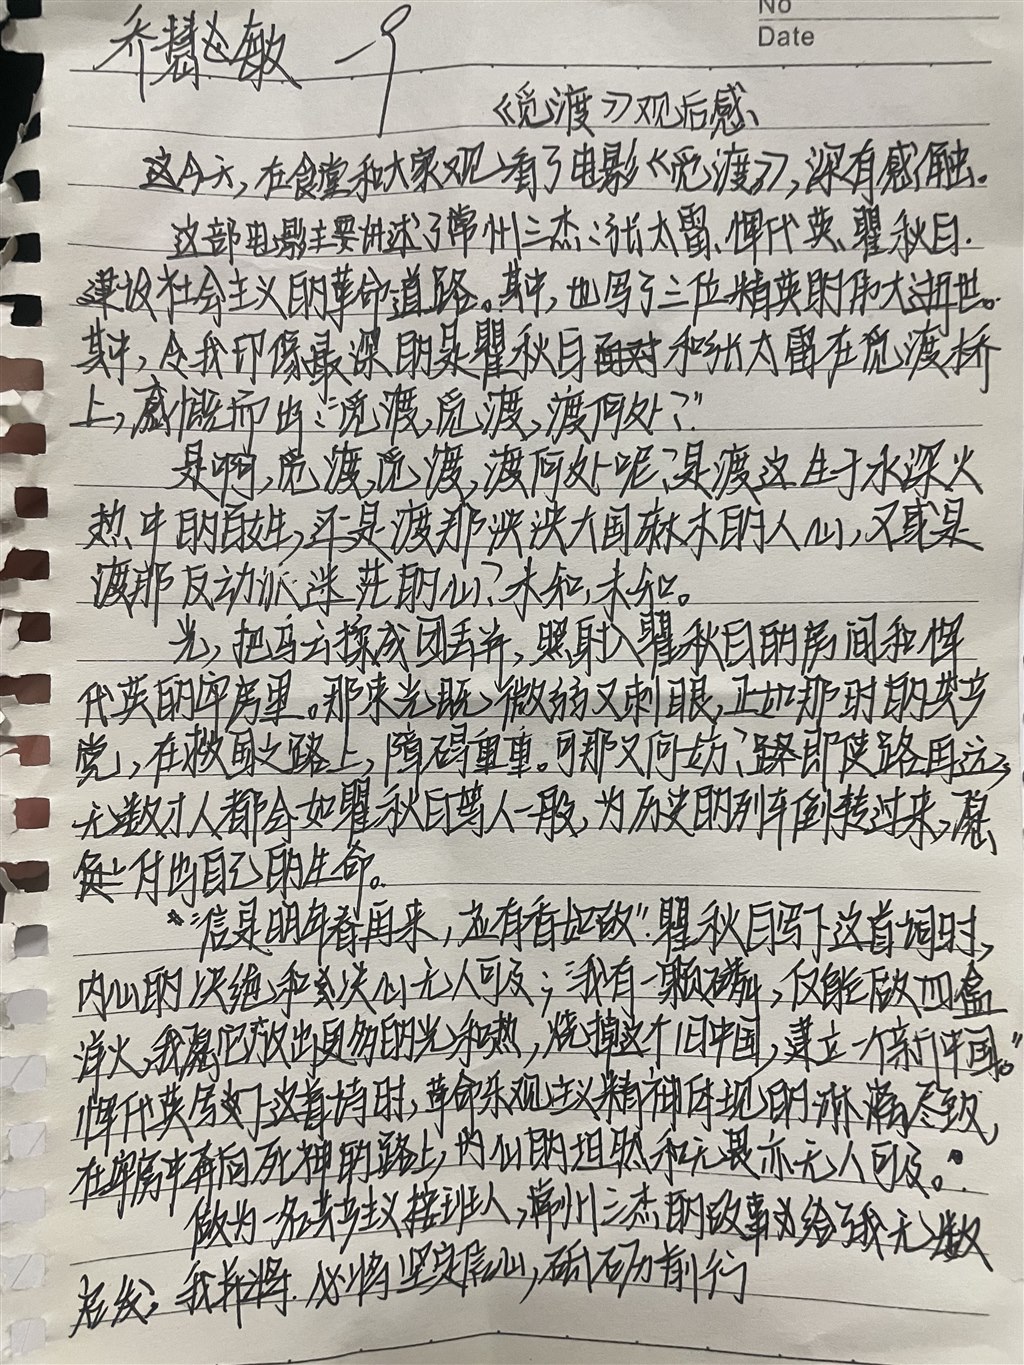 No
Date
乔慧敏 一9
《觅渡》观后感
这今天,在食堂和大家观看了电影《觅渡》,深有感触。
这部电影主要讲述了常州三杰:张太雷、恽代英、瞿秋白.
建设社会主义的革命道路。其中,也写了三位精英的伟大逝世。
其中,令我印像最深的是瞿秋白面对和张太雷在觅渡桥
上,感慨而出:“觅渡,觅渡,渡何处?”
是啊,觅渡,觅渡,渡何处呢?是渡这生于水深火
热中的百姓,还是渡那泱泱大国麻木的人心,又或是
渡那反动派迷茫的心?未知,未知。
光,把乌云揉成团丢弃,照射入瞿秋白的房间和恽
代英的牢房里。那束光既微弱又刺眼,正如那时的共产
党,在救国之路上,障碍重重。可那又何妨?即使路再远,
无数才人都会如瞿秋白等人一般,为历史的列车倒转过来,愿
付出自己的生命。
“信是明年春再来,应有香如故”.瞿秋白写下这首词时,
内心的决绝和决心无人可及;“我有一颗磷,仅能做四盒
洋火,我愿它放出更多的光和热,烧掉这个旧中国,建立一个新中国。”
恽代英写下这首诗时,革命乐观主义精神体现的淋漓尽致,
在牢房中奔向死神的路上,内心的坦然和无畏亦无人可及。
做为一名共产主义接班人,常州三杰的故事给了我无数
启发,我将必将坚定信心,砥砺前行